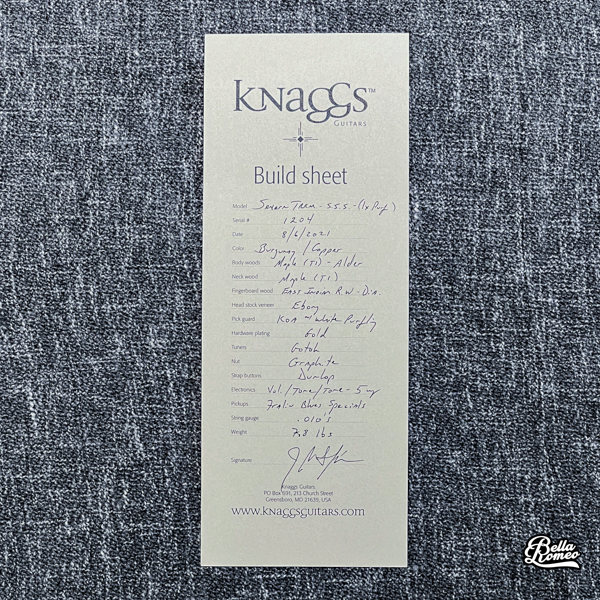 Knaggs™
Guitars
Build sheet
Model Severn Trem - S.S.S. - (1x Purf)
Serial # 1204
Date 8/6/2021
Color Burgundy / Copper
Body woods Maple (T1) - Alder
Neck wood Maple (T1)
Fingerboard wood East Indian R.W. -
Head stock veneer Ebony
Pick guard KOA w/ white Purfling
Hardware plating Gold
Tuners Gotoh
Nut Graphite
Strap buttons Dunlop
Electronics Vol./Tone/Tone - 5 way
Pickups Fralin Blues Specials
String gauge .010's
Weight 7.8 lbs
Signature
Knaggs Guitars
PO Box 691, 213 Church Street
Greensboro, MD 21639, USA
www.knaggsguitars.com
Bella
Romeo